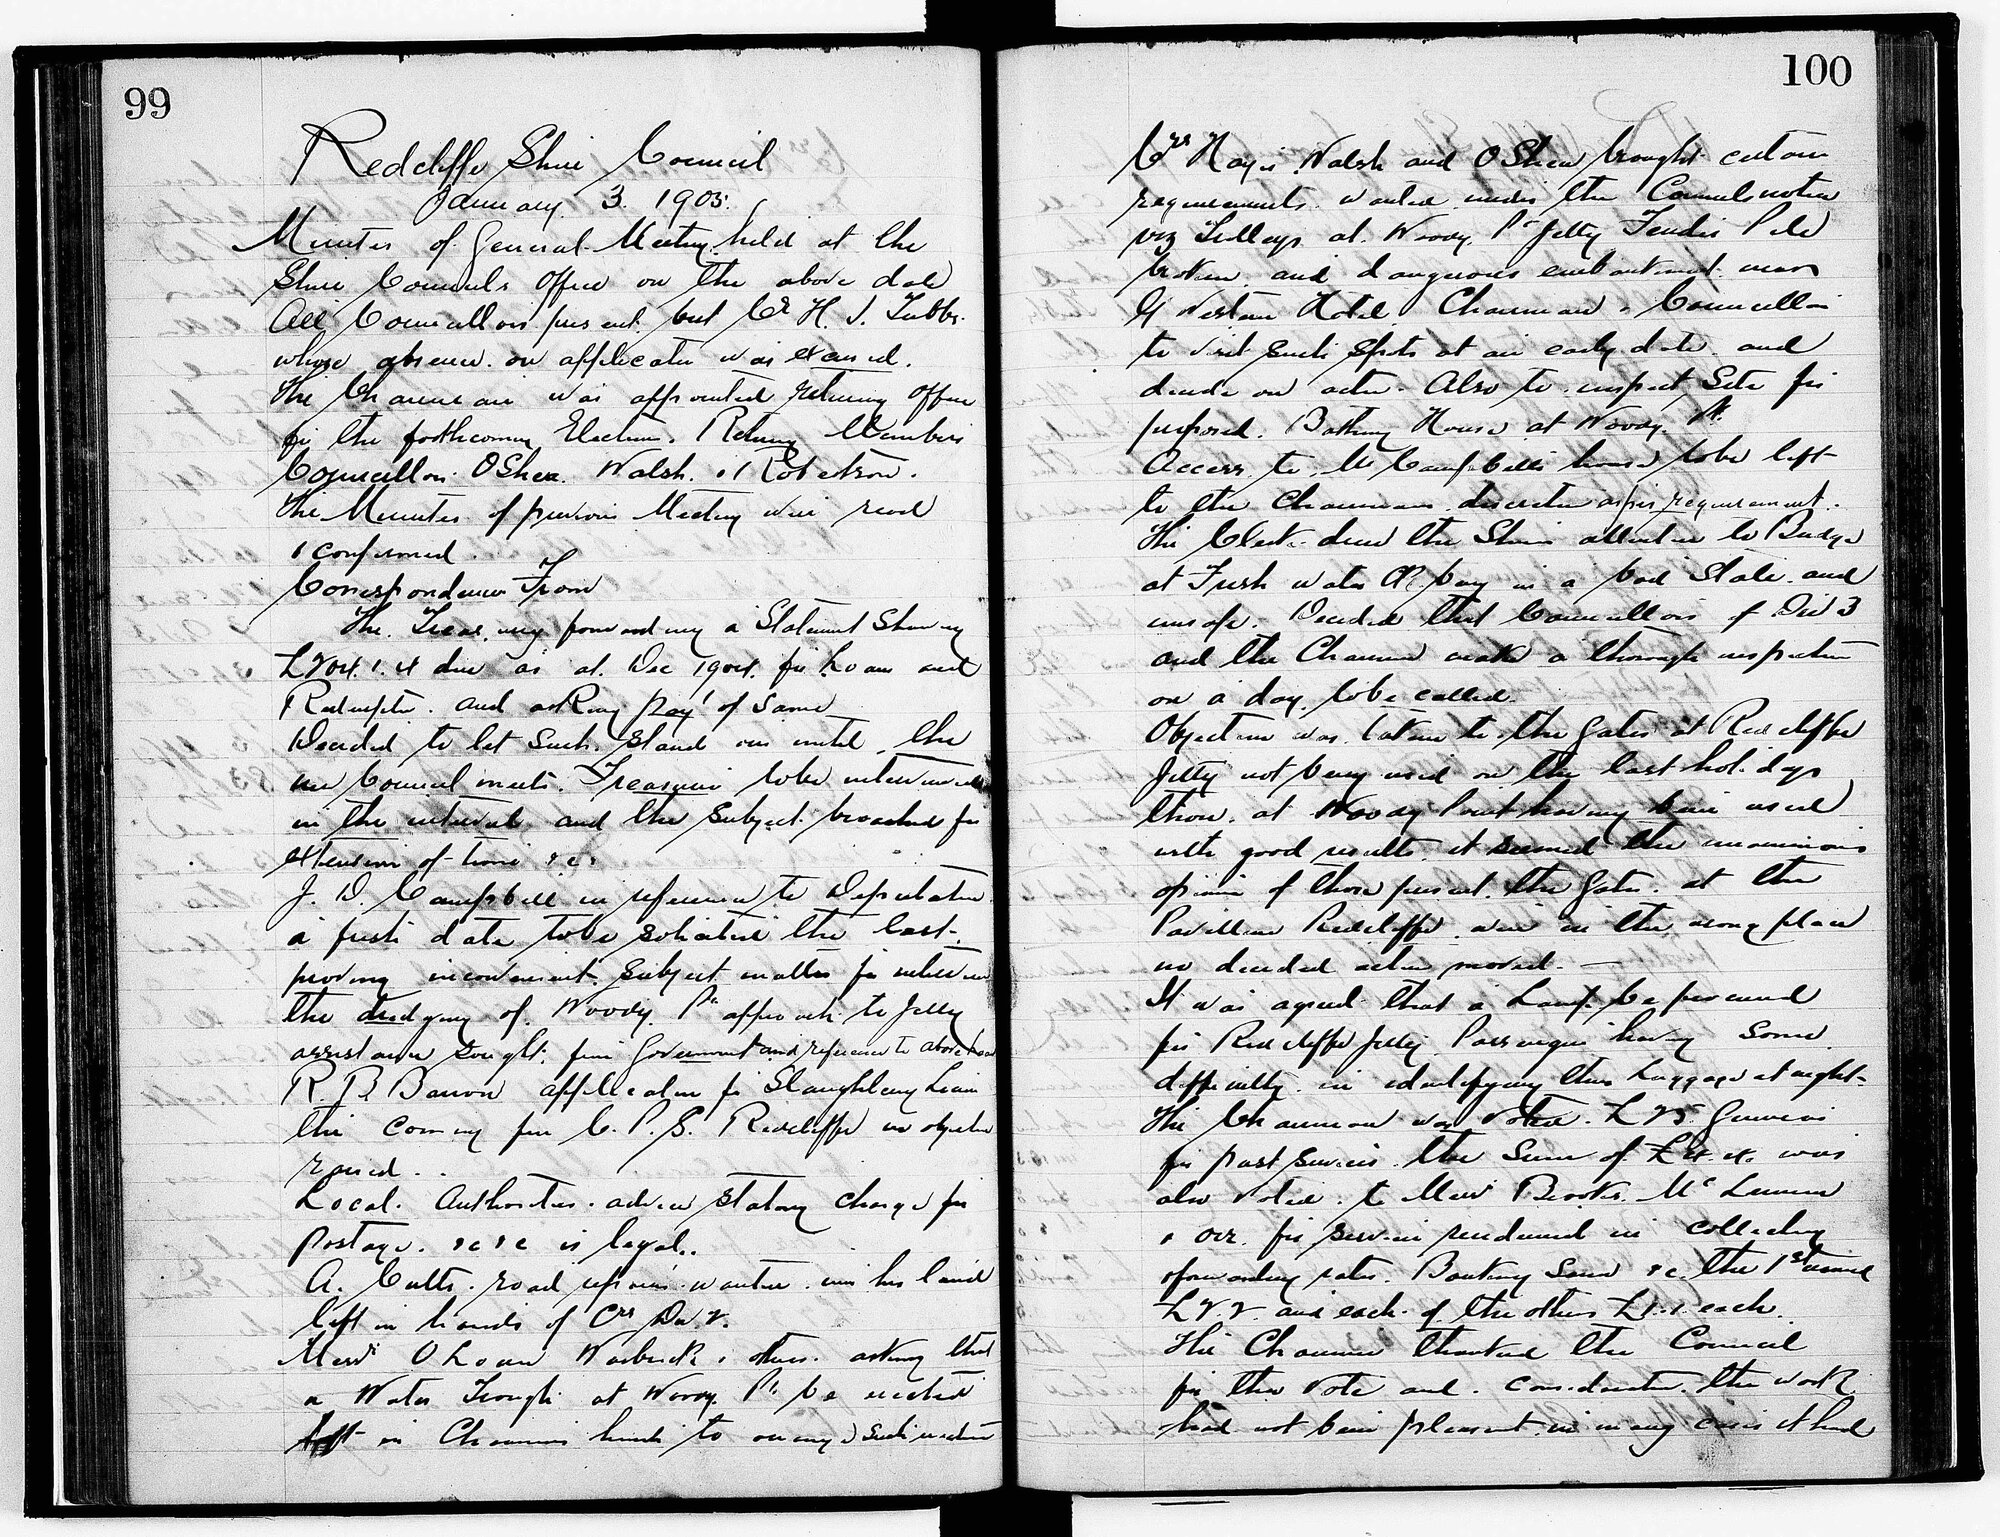 99
Redcliffe Shire Council
January 3 1905.
Minutes of General Meeting held at the
Shire Councils Office on the above date
All Councillors present but Cr H. J. Tubbs.
whose absence on application was excused.
The Chairman was appointed returning Officer
for the forthcoming Elections. Retiring Members
Councillors O'Shea. Walsh. & Robertson.
The Minutes of previous Meeting were read
& confirmed.
Correspondence From
The Treasury forwarding a Statement Showing
due as at Dec 1904. for Loan and
Redemption. and asking pay't of Same
Decided to let Such Stand over until the
new Council meets. Treasurer to be interviewed
in the interval and the Subject broached for
extension of time &c.
J. D. Campbell in reference to Deputation
a fresh date to be solicited the last
proving inconvenient. Subject matter for interview
the dredging of Woody Pt approach to Jetty
assistance sought from Government and reference to above
R. B. application for Slaughtering License
the coming from C. P. S. Redcliffe no objection
raised.
Local Authorities advice stating charge for
postage. &c &c is legal.
A. Cutts. road repairs wanted his land
left in hands of Crs Div 2.
Messrs Warbrick & others asking that
a Water Trough at Woody Pt be erected
left in Chairmans hands to arrange Such
100
Crs Hayes Walsh and O'Shea brought certain
requirements wanted under the Councils notice
viz Trolleys at Woody Pt Jetty Fender Pile
broken and dangerous embankment near
Gt Western Hotel Chairman & Councillors
to visit Such Spots at an early date and
decide on action. Also to inspect Site for
proposed Bathing House at Woody Pt.
Access to Mr Campbells house to be left
to the Chairmans discretion as per requirement.
The Clerk drew the Shires attention to Bridge
at Fresh water Ck being in a bad State and
unsafe. Decided that Councillors of Div 3
and the Chairman make a thorough inspection
on a day to be called.
Objection was taken to the Gates at Redcliffe
Jetty not being used on the last holidays
those at Woody Point having been used
with good results it seemed the unanimous
opinion of those present the Gates at the
Pavillion Redcliffe were in the wrong place
no decided action moved.—
It was agreed that a Lamp be procured
for Redcliffe Jetty Passengers having some
difficulty in identifying their Luggage at night
The Chairman was Voted £25 Guineas
for past Services the Sum of £4.4. was
also voted to Messrs Brooks. Mc
& Orr for Service rendered in collecting
& forwarding rates. Banking Same &c. the 1st
£2.2. and each of the others £1.1 each.
The Chairman thanked the Council
for the Vote and consideration the work
had not been pleasant in many cases it had